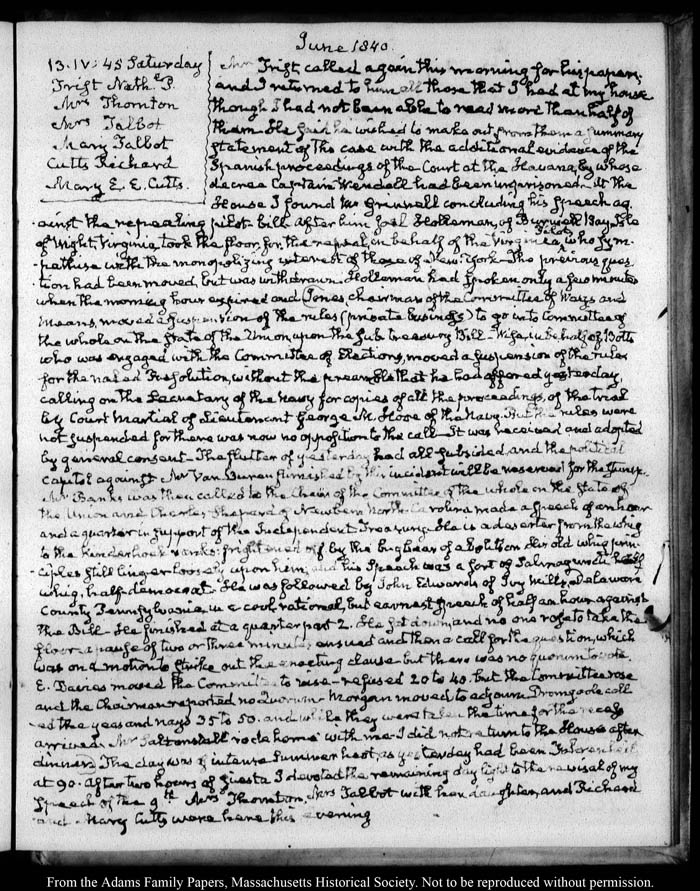 June 1840.
13. IV: 45 Saturday
Trist Nath. P.
Mrs Thornton
Mrs Talbot
Mary Talbot
Cutts Richard
Mary E. E. Cutts.
Mr Trist called again this morning for his papers,
and I returned to him all those that I had at my house
though I had not been able to read more than half of
them. He said he wished to make out from them a summary
statement of the case with the additional evidence of the
Spanish proceedings of the Court at the Havana, by whose
decree Captain Wendell had been imprisoned. At the
House I found Mr Grinnell concluding his speech ag
ainst the repealing pilot bill. After him Joel Holleman, of Burwell Bay, Isle
of Wight, Virginia, took the floor, for the repeal, in behalf of the Virginia Pilots, who sym-
-pathise with the monopolizing interest of those of New-York. The previous ques
tion had been moved, but was withdrawn. Holleman had spoken only a few minutes
when the morning hour expired and Jones, chairman of the Committee of Ways and
Means, moved a suspension of the rules (private business) to go into Committee of
the whole on the State of the Union, upon the Sub treasury Bill. Wise, in behalf of Botts
who was engaged with the Committee of Elections, moved a suspension of the rules
for the naked Resolution, without the preamble that he had offered yesterday,
calling on the Secretary of the Navy for copies of all the proceedings, of the trial
by Court Martial of Lieutenant George M. Hooe of the Navy. But the rules were
not suspended for there was now no opposition to the call. It was received and adopted
by general consent. The flutter of yesterday had all subsided, and the political
capital against Mr Van Buren furnished by this incident will be reserved for the
Mr Banks was then called to the Chair of the Committee of the whole on the State of
the Union and Charles Shepard of Newbern North-Carolina made a speech of an hour
and a quarter in support of the Independent Treasury. He is a deserter from the whig
to the Kinderhook ranks; frightened off by the bugbear of abolition. His old whig prin-
-ciples still linger loosely upon him, and his Speech was a sort of Salmagundi, half
whig, half-democrat. He was followed by John Edwards of Ivy Mills, Delaware
County Pennsylvania in a cool, rational, but earnest speech of half an hour against
the Bill. He finished at a quarter past 2. He sat down, and no one rose to take the
floor. a pause of two or three minutes ensued and then a call for the question, which
was on a motion to strike out the enacting clause but there was no quorum to vote.
E. Davies moved the Committee to rise - refused 20 to 40. but the Committee rose
and the Chairman reported no Quorum. Morgan moved to adjourn. Dromgoole call
-ed the yeas and nays 35 to 50. and while they were taken the time for the recess
arrived. Mr Saltonstall rode home with me. I did not return to the House after
dinner. The day was of intense Summer heat, as yesterday had been. Fahrenheit
at 90. After two hours of siesta I devoted the remaining day light to the revisal of my
Speech of the 9th. Mrs Thornton, Mrs Talbot with her daughter, and Richard
and Mary Cutts were here this evening
From the Adams Family Papers, Massachusetts Historical Society. Not to be reproduced without permission.